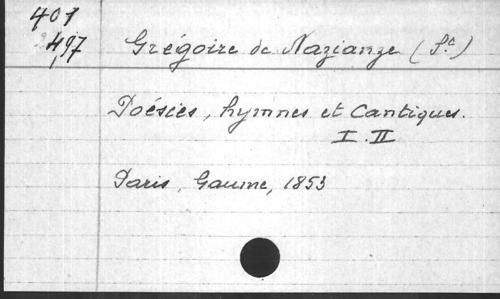 401
497
Grégoire de Nazianze (St)
Poésies, hymnes et Cantiques.
I. II
Paris, Gaume, 1853